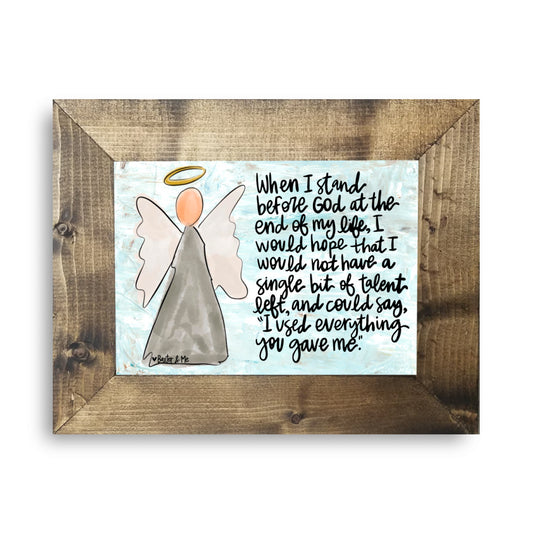 When I stand
before God at the
end of my life, I
would hope that I
would not have a
single bit of talent
left, and could say,
"I used everything
you gave me."
♥Baxter & Me